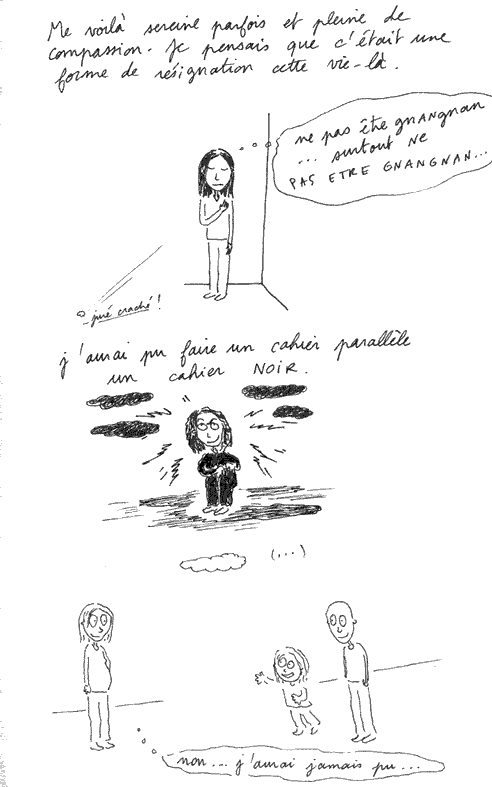 Me voilà sereine parfois et pleine de
compassion. Je pensais que c'était une
forme de résignation cette vie-là.
ne pas être gnangnan
... surtout NE
PAS ETRE GNANGNAN...
juré craché !
j'aurai pu faire un cahier parallèle
un cahier NOIR.
(...)
non... j'aurai jamais pu...